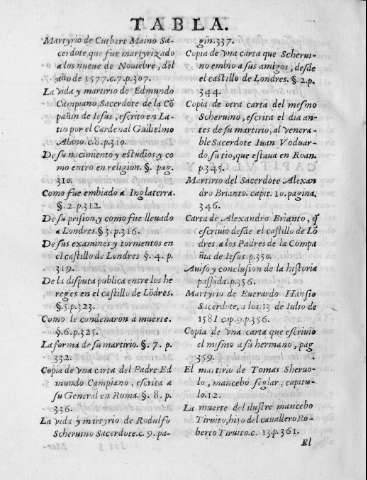 TABLA.
Martyrio de Cutbert Maino Sa-
cerdote, que fue martyrizado
a los nueue de Nouiebre, del
año de 1577. c.7. p.307.
La vida y martirio de Edmundo
Campiano, Sacerdote de la Cõ
pañia de Iesus, escrito en La-
tin por el Cardenal Guilielmo
Alano. c.8. p.310.
De su nacimiento y estudios, y co
mo entro en religion. §. pag.
310.
Como fue embiado a Inglaterra.
§. 2. p.312.
De su prision, y como fue lleuado
a Londres. §. 3. p.316.
De sus examines y tormentos en
el castillo de Londres §. 4. p.
319.
De la disputa publica entre los he
reges en el castillo de Lõdres.
§. 5. p.323.
Como le condenaron a muerte.
§. 6. p.325.
La forma de su martirio. §. 7. p.
332.
Copia de vna carta del Padre Ed
mundo Campiano, escrita a
su General en Roma. §. 8. p.
336.
La vida y martyrio de Rodulfo
Scheruino Sacerdote. c. 9. pa-
gin. 337.
Copia de vna carta que Scherui-
no embio a sus amigos, desde
el castillo de Londres. §. 2. p.
344.
Copia de otra carta del mesmo
Scheruino, escrita el dia an-
tes de su martirio, al venera-
ble Sacerdote Iuan Voduar-
do su tio, que estaua en Roan.
p.345.
Martirio del Sacerdote Alexan
dro Brianto. capit. 10. pagina,
346.
Carta de Alexandro Brianto, q̃
escriuio desde el castillo de Lõ
dres. a los Padres de la Compa
ñia de Iesus. p.350.
Auiso y conclusion de la historia
passada. p.356.
Martyrio de Euerardo Hansio
Sacerdote, a los 13. de Iulio de
1581 cap. p.356.
Copia de vna carta que escriuio
el mesmo a su hermano, pag
359.
El martirio de Tomas Sheruo-
lo, mancebo seglar; capitu-
lo. 12.
La muerte del ilustre mancebo
Tiruito, hijo del cauallero Ro-
berto Tiruito. c. 13. p.361.
El